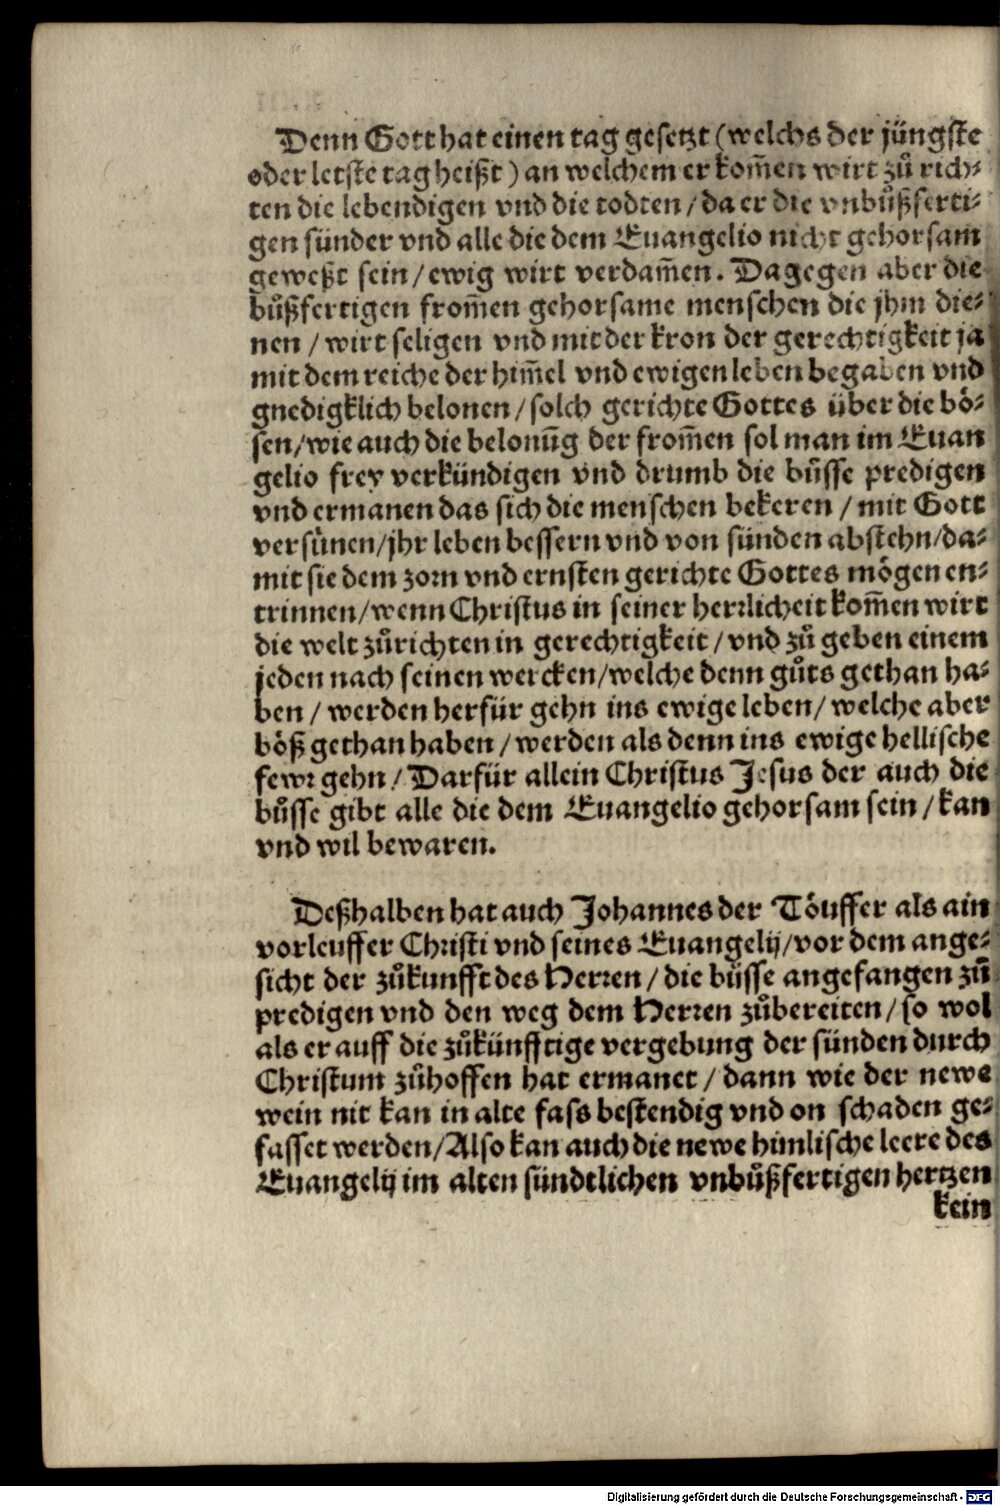 Denn Gott hat einen tag gesetzt (welchs der jüngste
oder letste tag heißt) an welchem er kom̄en wirt zů rich⸗
ten die lebendigen vnd die todten / da er die vnbůßferti⸗
gen sünder vnd alle die dem Euangelio nicht gehorsam
geweßt sein / ewig wirt verdam̄en. Dagegen aber die
bůßfertigen from̄en gehorsame menschen die jhm die⸗
nen / wirt seligen vnd mit der kron der gerechtigkeit ja
mit dem reiche der him̄el vnd ewigen leben begaben vnd
gnedigklich belonen / solch gerichte Gottes über die bö⸗
sen / wie auch die belonūg der from̄en sol man im Euan
gelio frey verkündigen vnd drumb die bůsse predigen
vnd ermanen das sich die menschen bekeren / mit Gott
versünen / jhr leben bessern vnd von sünden abstehn / da⸗
mit sie dem zorn vnd ernsten gerichte Gottes mögen en⸗
trinnen / wenn Christus in seiner herrlicheit kom̄en wirt
die welt zůrichten in gerechtigkeit / vnd zů geben einem
jeden nach seinen wercken / welche denn gůts gethan ha⸗
ben / werden herfür gehn ins ewige leben / welche aber
böß gethan haben / werden als denn ins ewige hellische
fewr gehn / Darfür allein Christus Jesus der auch die
bůsse gibt alle die dem Euangelio gehorsam sein / kan
vnd wil bewaren.
Deßhalben hat auch Johannes der Töuffer als ain
vorleuffer Christi vnd seines Euangelij / vor dem ange⸗
sicht der zůkunfft des Herren / die bůsse angefangen zů
predigen vnd den weg dem Herren zůbereiten / so wol
als er auff die zůkünfftige vergebung der sünden durch
Christum zůhoffen hat ermanet / dann wie der newe
wein nit kan in alte fass bestendig vnd on schaden ge⸗
fasset werden / Also kan auch die newe himlische leere des
Euangelij im alten sündtlichen vnbůßfertigen hertzen
kein
Digitalisierung gefördert durch die Deutsche Forschungsgemeinschaft - DFG